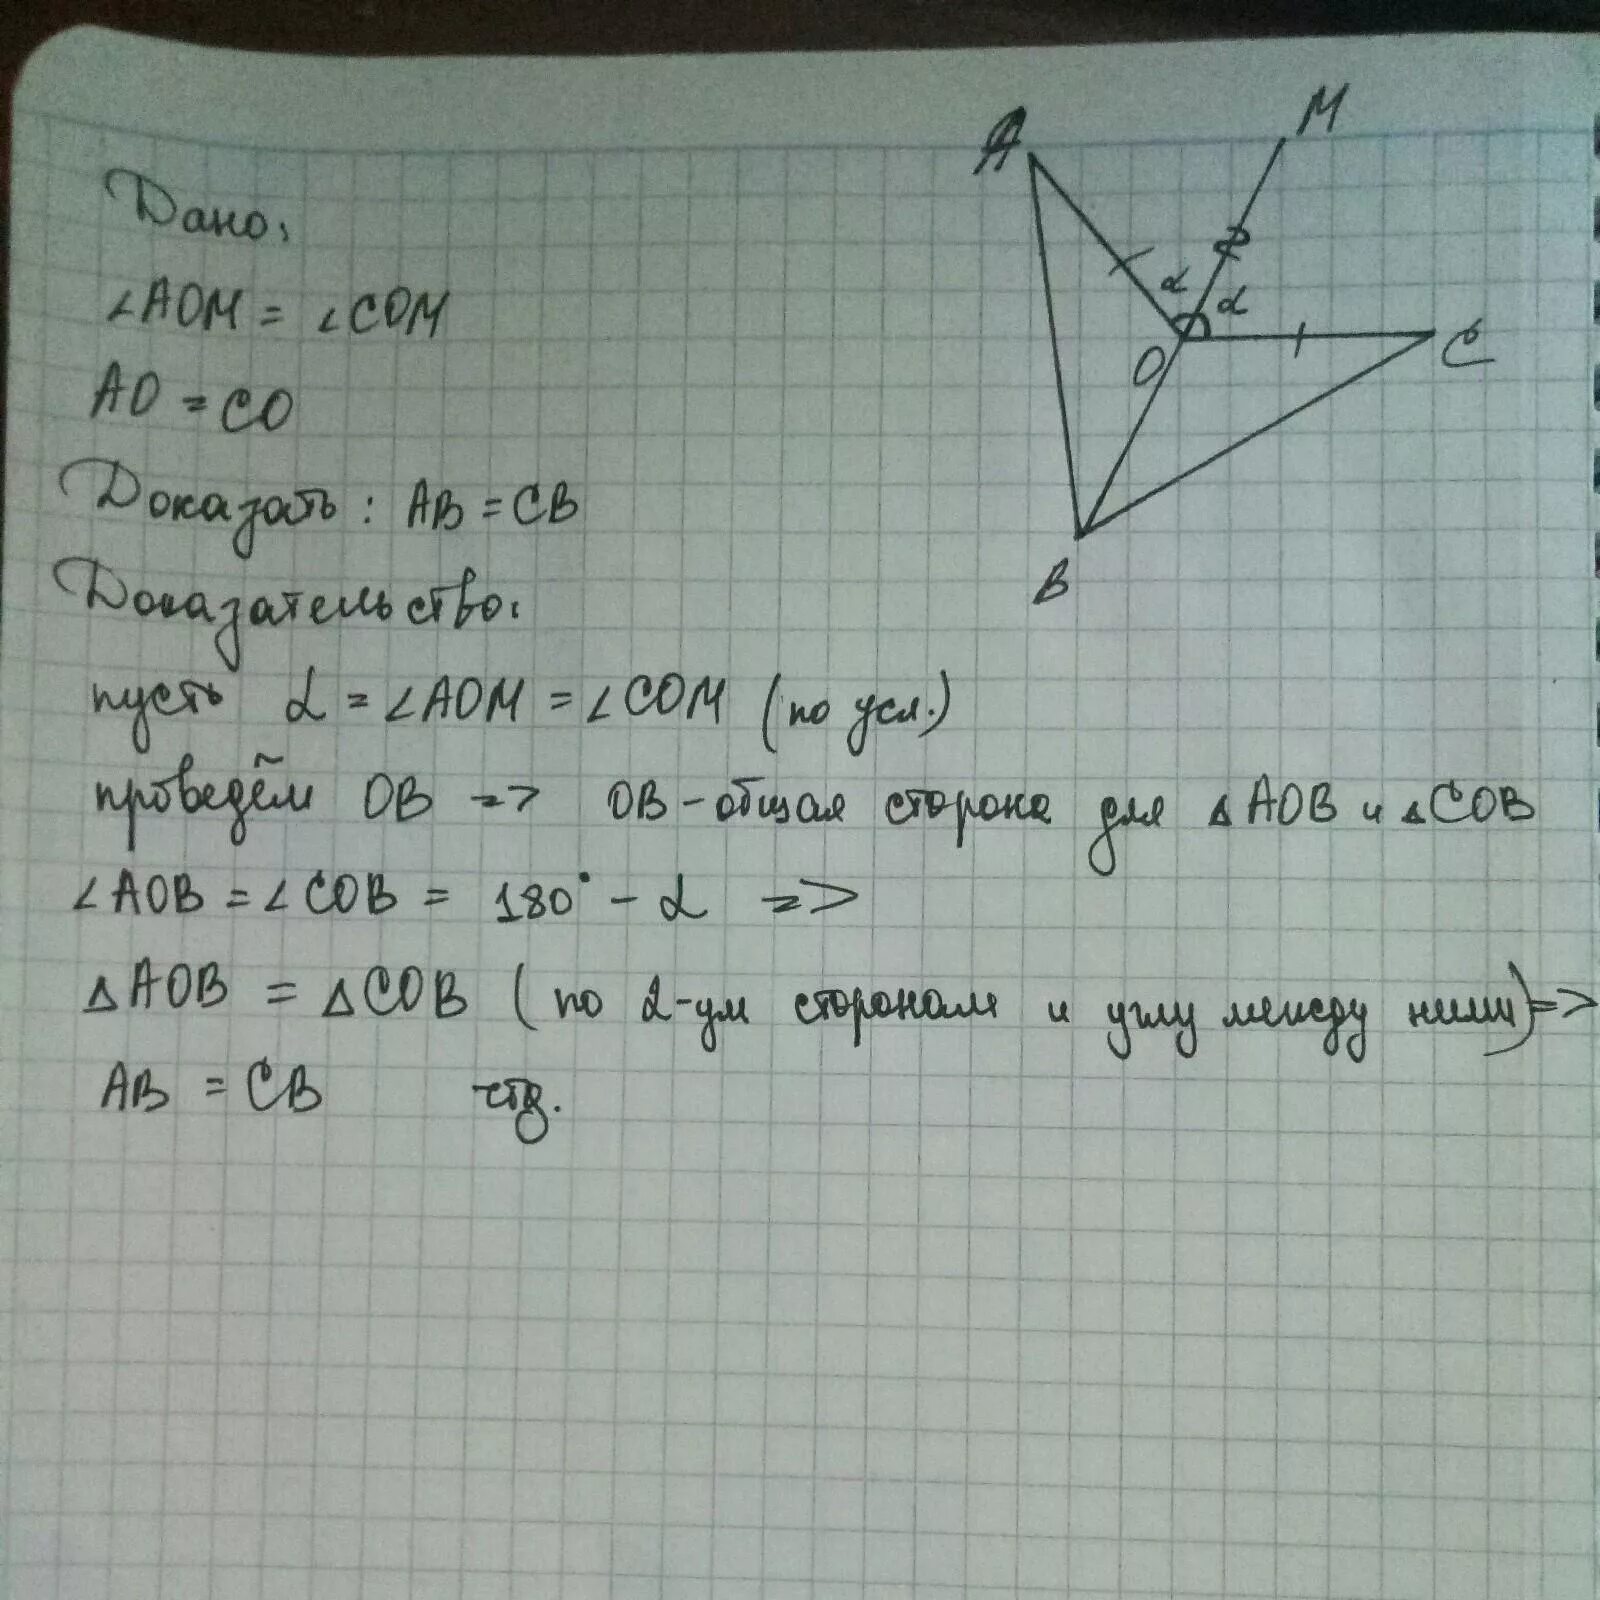 Дано:
∠AOM = ∠COM
AO = CO
Доказать: AB = CB
Доказательство:
пусть α = ∠AOM = ∠COM (по усл.)
проведём OB => OB - общая сторона для △AOB и △COB
∠AOB = ∠COB = 180° - α =>
△AOB = △COB (по 2-ум сторонам и углу между ними) =>
AB = CB чтд.
A
M
α
α
O
C
B